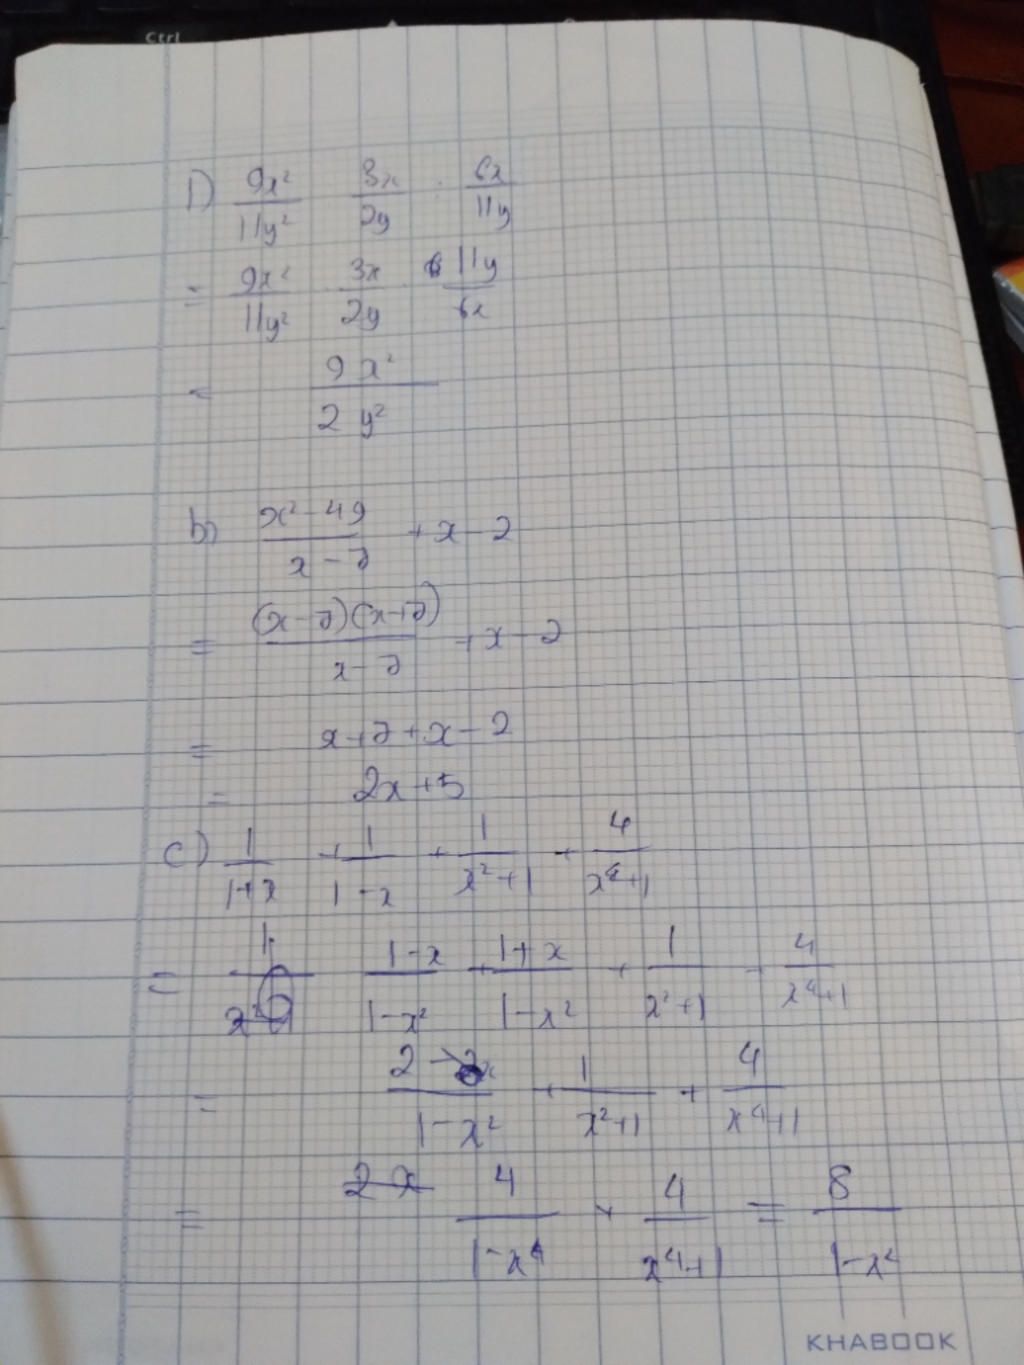 Ctrl
1) 9x²/11y² 3x/2y · 6x/11y
= 9x²/11y² · 3x/2y · 11y/6x
= 9x²/2y²
b) x²-49/x-7 + x-2
= (x-7)(x+7)/x-7 + x-2
= x+7+x-2
= 2x+5
c) 1/1+x + 1/1-x + 1/x²+1 + 4/x⁴+1
= 1-x/1-x² + 1+x/1-x² + 1/x²+1 + 4/x⁴+1
= 2/1-x² + 1/x²+1 + 4/x⁴+1
= 4/1-x⁴ + 4/x⁴+1 = 8/1-x⁴
KHABOOK